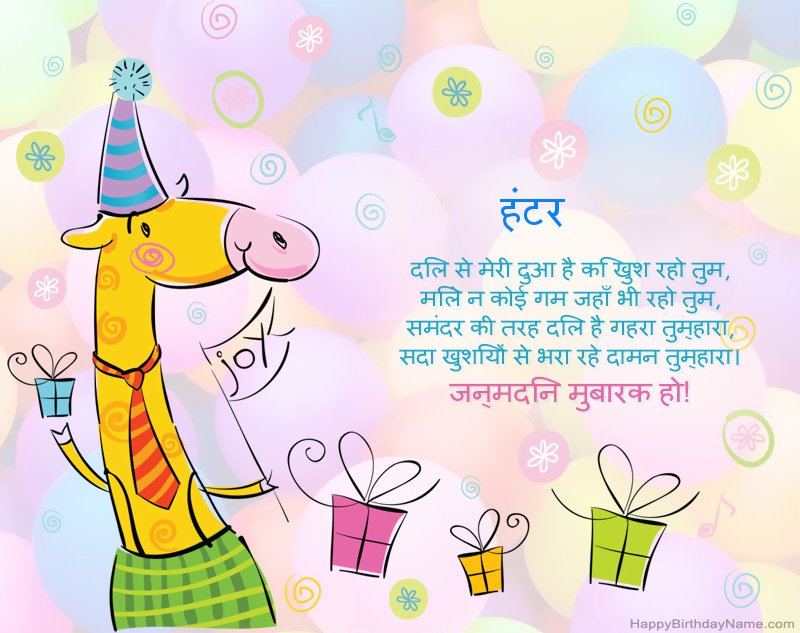 हंटर
दिल से मेरी दुआ है कि खुश रहो तुम,
मिले न कोई गम जहाँ भी रहो तुम,
समंदर की तरह दिल है गहरा तुम्हारा,
सदा खुशियों से भरा रहे दामन तुम्हारा।
जन्मदिन मुबारक हो!
joy
HappyBirthdayName.com